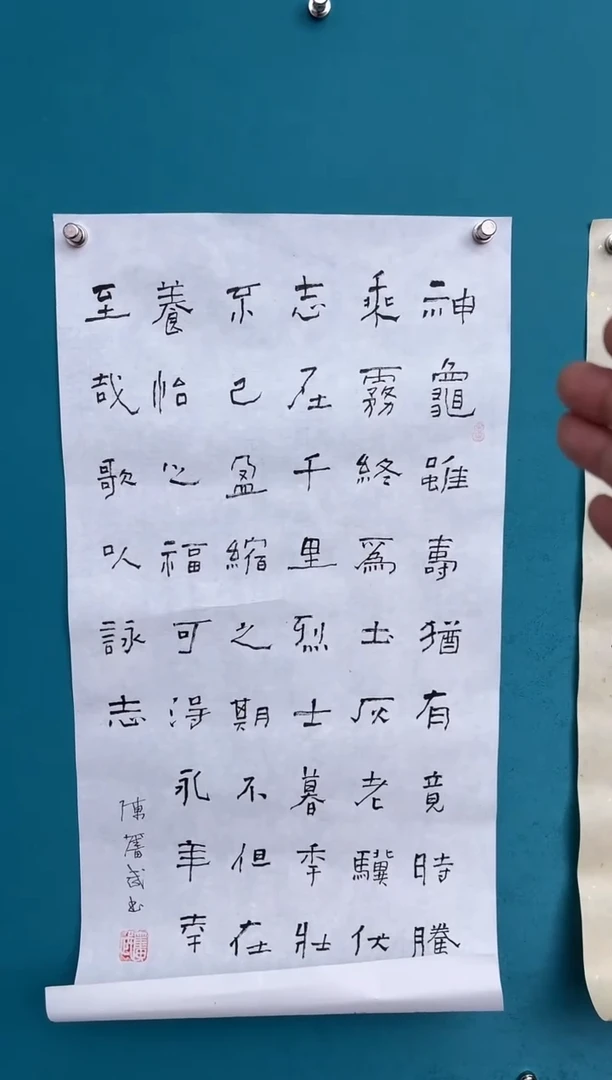 神龜雖壽猶有竟時騰
乘霧終爲土灰老驥伏
志在千里烈士暮年壯
不已盈縮之期不但在
養怡之福可得永年幸
至哉歌以詠志
陳